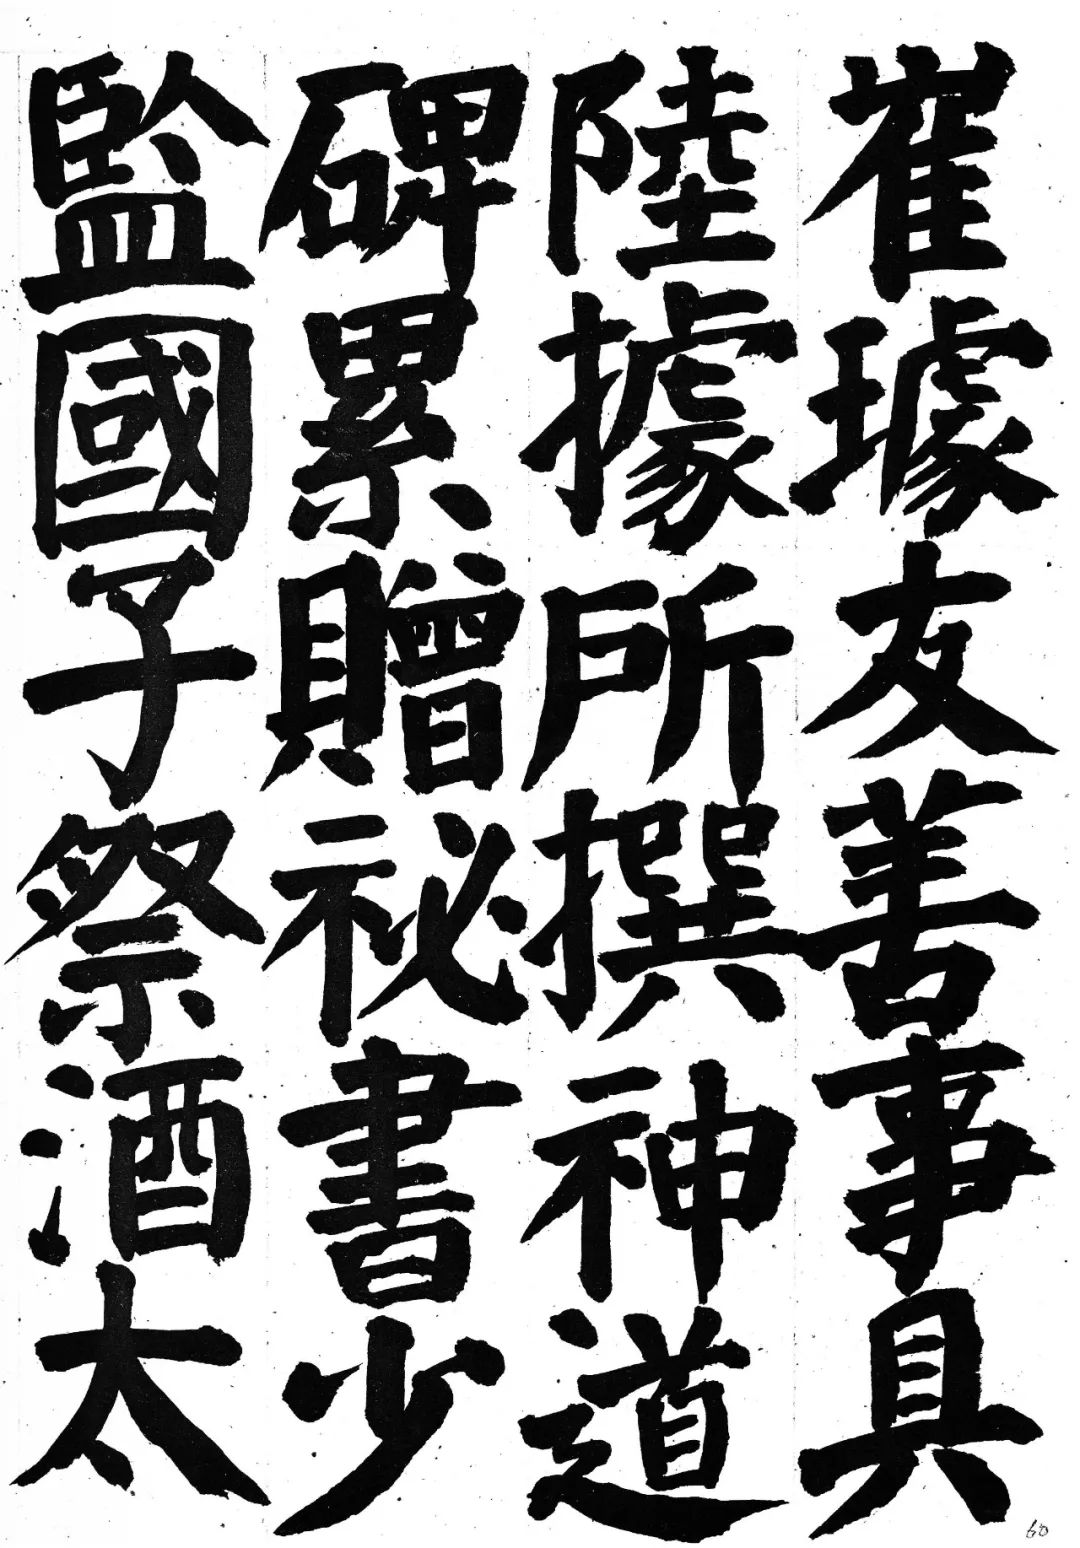 崔璩友善事具
陸據所撰神道
碑累贈祕書少
監國子祭酒太
60